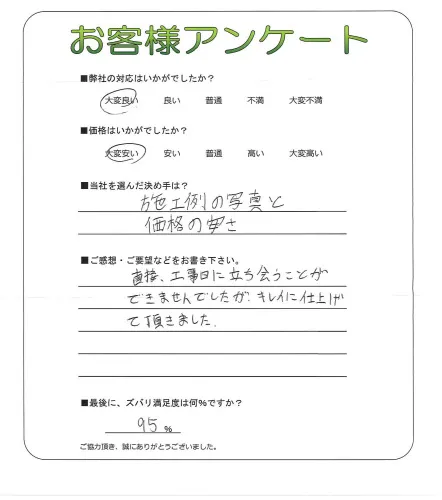 お客様アンケート
■弊社の対応はいかがでしたか?
大変良い 良い 普通 不満 大変不満
■価格はいかがでしたか?
大変安い 安い 普通 高い 大変高い
■当社を選んだ決め手は?
施工例の写真と
価格の安さ
■ご感想・ご要望などをお書き下さい。
直接、工事日に立ち会うことが
できませんでしたが、キレイに仕上げ
て頂きました.
■最後に、ズバリ満足度は何%ですか?
95 %
ご協力頂き、誠にありがとうございました。